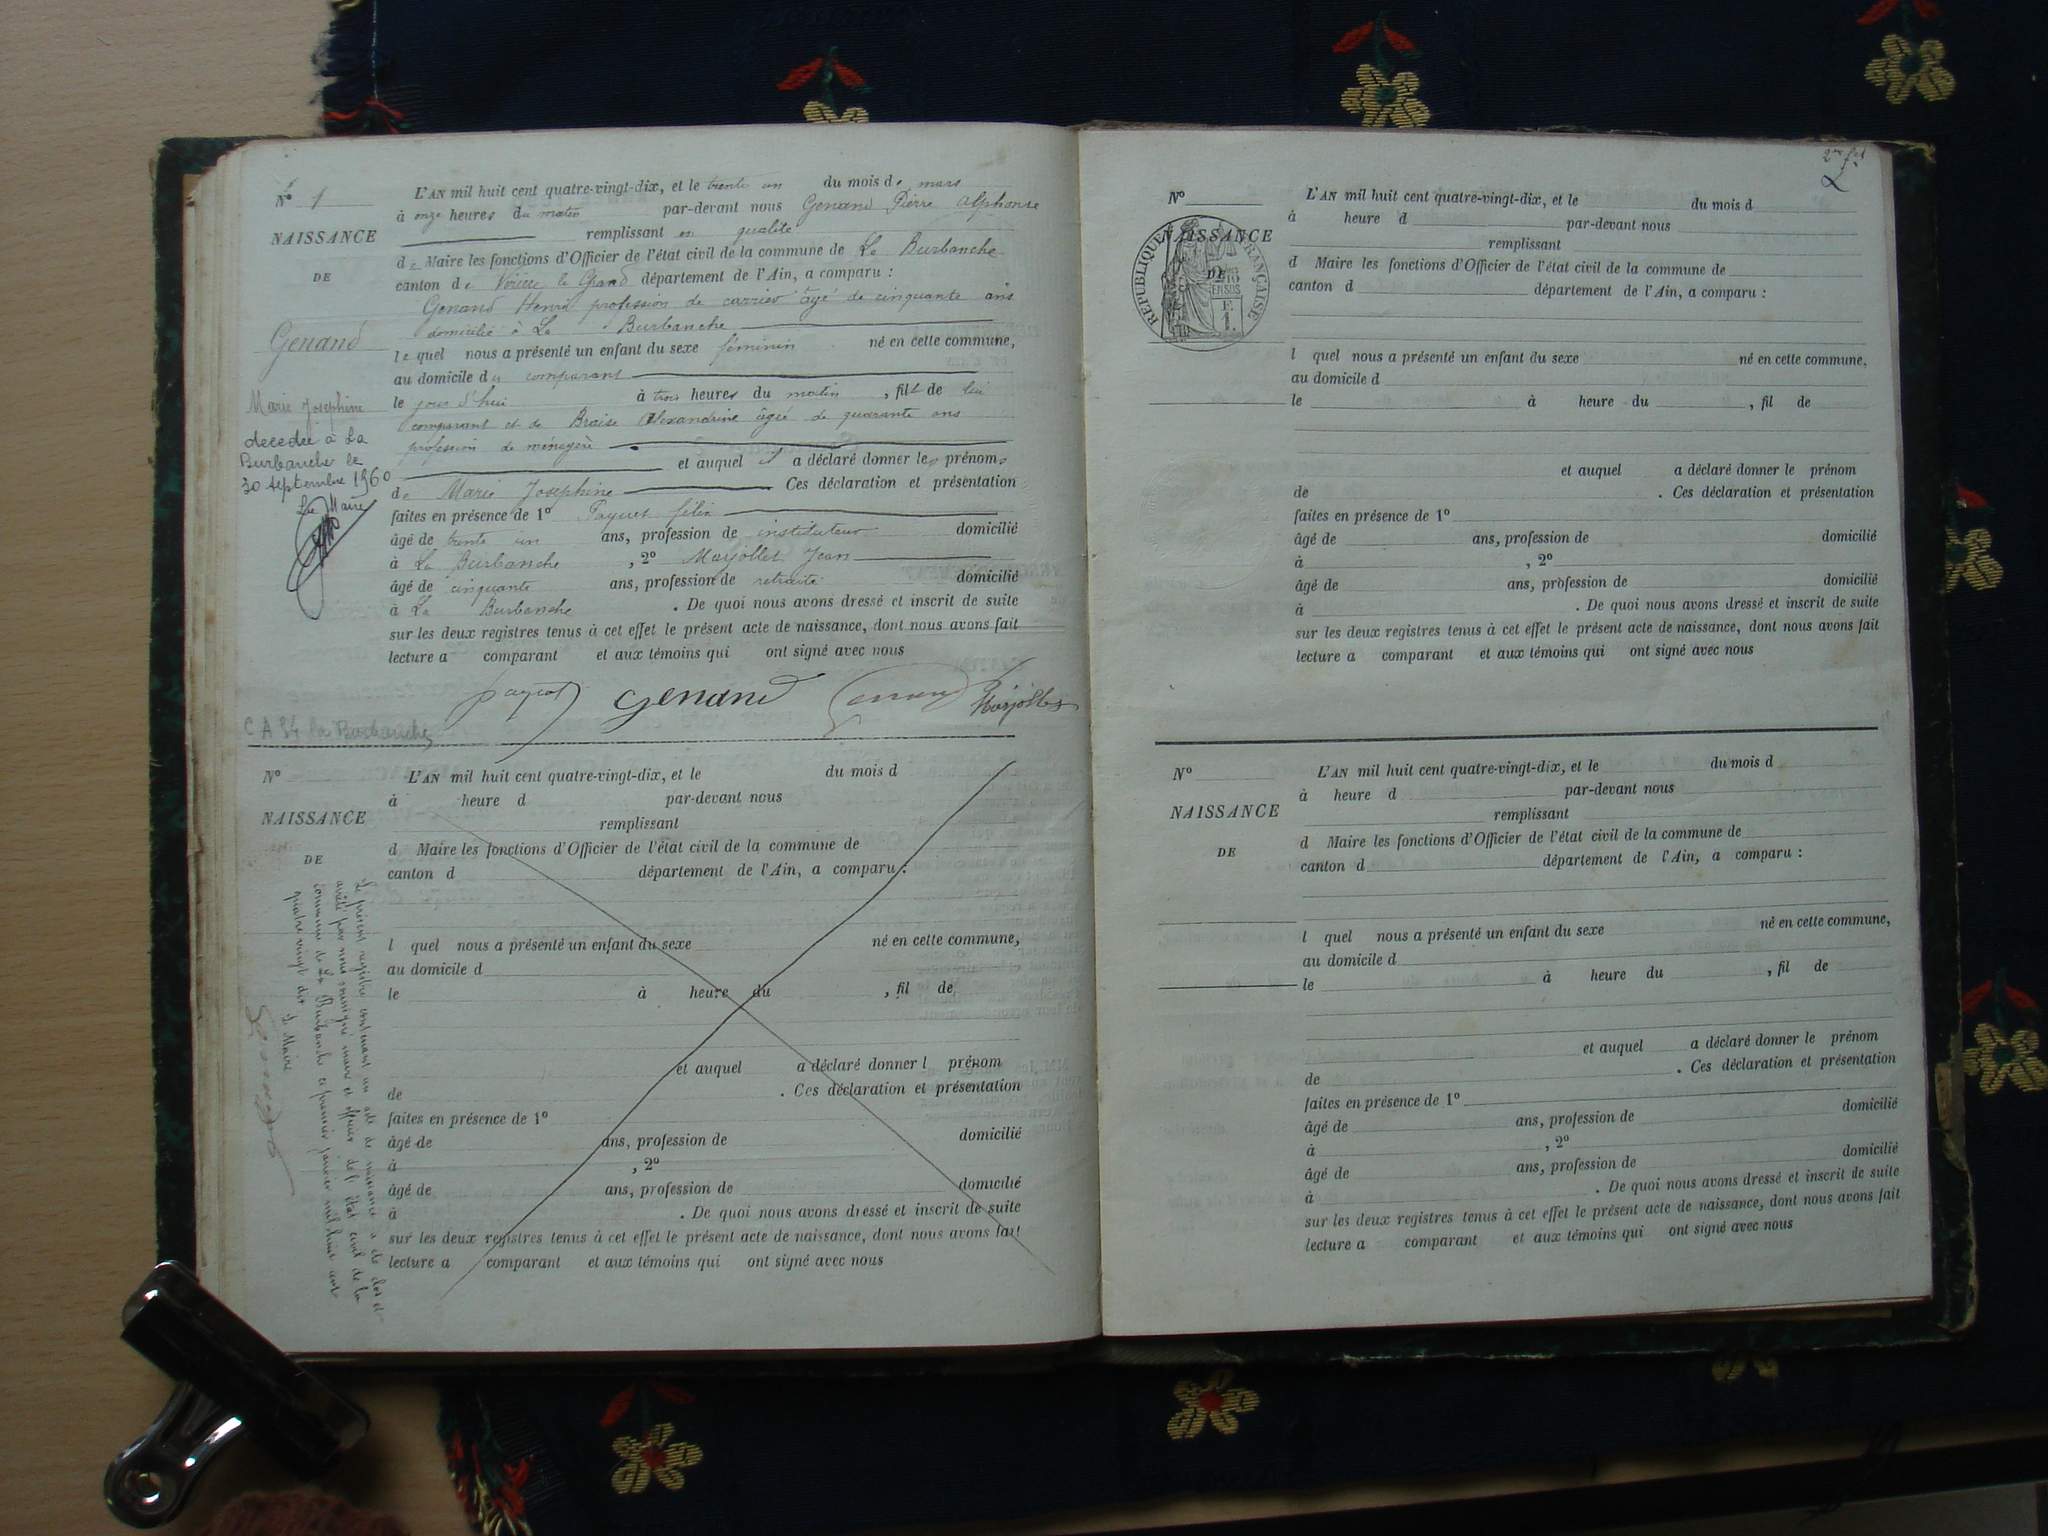 N° 1
NAISSANCE
DE
Genand
Marie Josephine
decedée à La
Burbanche le
30 septembre 1960
Le Maire
L'AN mil huit cent quatre-vingt-dix, et le trente un du mois de mars
à onze heures du matin par-devant nous Genand Pierre Alphonse
remplissant en qualité
de Maire les fonctions d'Officier de l'état civil de la commune de La Burbanche
canton de Virieu le Grand département de l'Ain, a comparu :
Genand Henri profession de carrier âgé de cinquante ans
domicilié à La Burbanche
le quel nous a présenté un enfant du sexe féminin né en cette commune,
au domicile du comparant
le jour d'hui à trois heures du matin , fille de lui
comparant et de Braise Alexandrine âgée de quarante ans
profession de ménagère
et auquel il a déclaré donner les prénoms
de Marie Josephine Ces déclaration et présentation
faites en présence de 1° Payrot félix
âgé de trente un ans, profession de instituteur domicilié
à La Burbanche , 2° Marjollet Jean
âgé de cinquante ans, profession de retraité domicilié
à La Burbanche . De quoi nous avons dressé et inscrit de suite
sur les deux registres tenus à cet effet le présent acte de naissance, dont nous avons fait
lecture a comparant et aux témoins qui ont signé avec nous
payrot Genand Genand Marjollet
C A 34 la Burbanche
N°
NAISSANCE
DE
L'AN mil huit cent quatre-vingt-dix, et le du mois d
à heure d par-devant nous
remplissant
d Maire les fonctions d'Officier de l'état civil de la commune de
canton d département de l'Ain, a comparu :
l quel nous a présenté un enfant du sexe né en cette commune,
au domicile d
le à heure du , fil de
et auquel a déclaré donner l prénom
de . Ces déclaration et présentation
faites en présence de 1°
âgé de ans, profession de domicilié
à , 2°
âgé de ans, profession de domicilié
à . De quoi nous avons dressé et inscrit de suite
sur les deux registres tenus à cet effet le présent acte de naissance, dont nous avons fait
lecture a comparant et aux témoins qui ont signé avec nous
Le présent registre contenant un acte de naissance a été clos et
arrêté par nous soussigné maire et officier de l'état civil de la
commune de La Burbanche ce premier janvier mil huit cent
quatre vingt dix
Le Maire
2
N°
NAISSANCE
DE
RÉPUBLIQUE FRANÇAISE
L'AN mil huit cent quatre-vingt-dix, et le du mois d
à heure d par-devant nous
remplissant
d Maire les fonctions d'Officier de l'état civil de la commune de
canton d département de l'Ain, a comparu :
l quel nous a présenté un enfant du sexe né en cette commune,
au domicile d
le à heure du , fil de
et auquel a déclaré donner le prénom
de . Ces déclaration et présentation
faites en présence de 1°
âgé de ans, profession de domicilié
à , 2°
âgé de ans, profession de domicilié
à . De quoi nous avons dressé et inscrit de suite
sur les deux registres tenus à cet effet le présent acte de naissance, dont nous avons fait
lecture a comparant et aux témoins qui ont signé avec nous
N°
NAISSANCE
DE
L'AN mil huit cent quatre-vingt-dix, et le du mois d
à heure d par-devant nous
remplissant
d Maire les fonctions d'Officier de l'état civil de la commune de
canton d département de l'Ain, a comparu :
l quel nous a présenté un enfant du sexe né en cette commune,
au domicile d
le à heure du , fil de
et auquel a déclaré donner le prénom
de . Ces déclaration et présentation
faites en présence de 1°
âgé de ans, profession de domicilié
à , 2°
âgé de ans, profession de domicilié
à . De quoi nous avons dressé et inscrit de suite
sur les deux registres tenus à cet effet le présent acte de naissance, dont nous avons fait
lecture a comparant et aux témoins qui ont signé avec nous